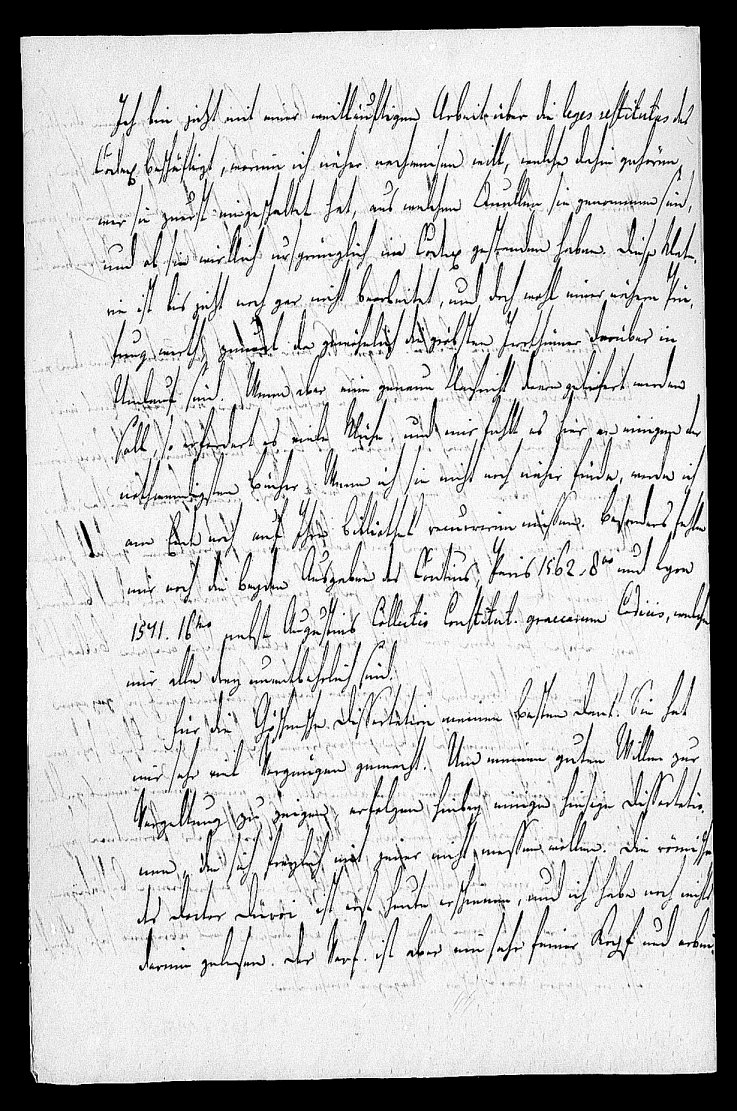 Ich bin jetzt mit einer weitläuftigen Arbeit über die leges restitutas des
Codex beschäftigt, worin ich näher nachweisen will, welche dahin gehören,
wer sie zuerst eingeschaltet hat, aus welchen Quellen sie genommen sind,
und ob sie wirklich ursprünglich im Codex gestanden haben. Diese Mate-
rie ist bis jetzt noch gar nicht bearbeitet, und doch wohl einer nähern Prü-
fung werth, zumal da gewöhnlich die größten Irrthümer darüber in
Umlauf sind. Wenn aber eine genaue Nachricht davon geliefert werden
soll, so erfordert es viele Mühe, und mir fehlt es hier an einigen der
nothwendigsten Bücher. Wenn ich sie nicht noch näher finde, werde ich
am Ende noch auf Ihre Bibliothek recurriren müssen. Besonders fehlen
mir noch die beyden Ausgaben des Contius, Paris 1562. 8vo und Lyon
1571. 16mo nebst Augustins Collectio Constitut. graecarum Codicis, welche
mir alle drey unentbehrlich sind.
Für die Dissertation meinen besten Dank. Sie hat
mir sehr viel Vergnügen gemacht. Um meinen guten Willen zur
Vergeltung zu zeigen, erfolgen hiebey einige hiesige Dissertatio-
nen, die sich freylich mit jener nicht messen wollen. Die
des Doctor ist erst heute erschienen, und ich habe noch nichts
darin gelesen. Der Verf. ist aber ein sehr feiner Kopf und arbei-